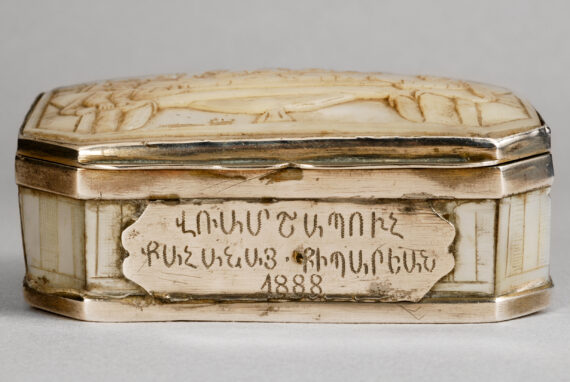 ՎՌԱՄՇԱՊՈՒՀ
ՔԱՀԱՆԱՅ ՔԻՊԱՐԵԱՆ
1888